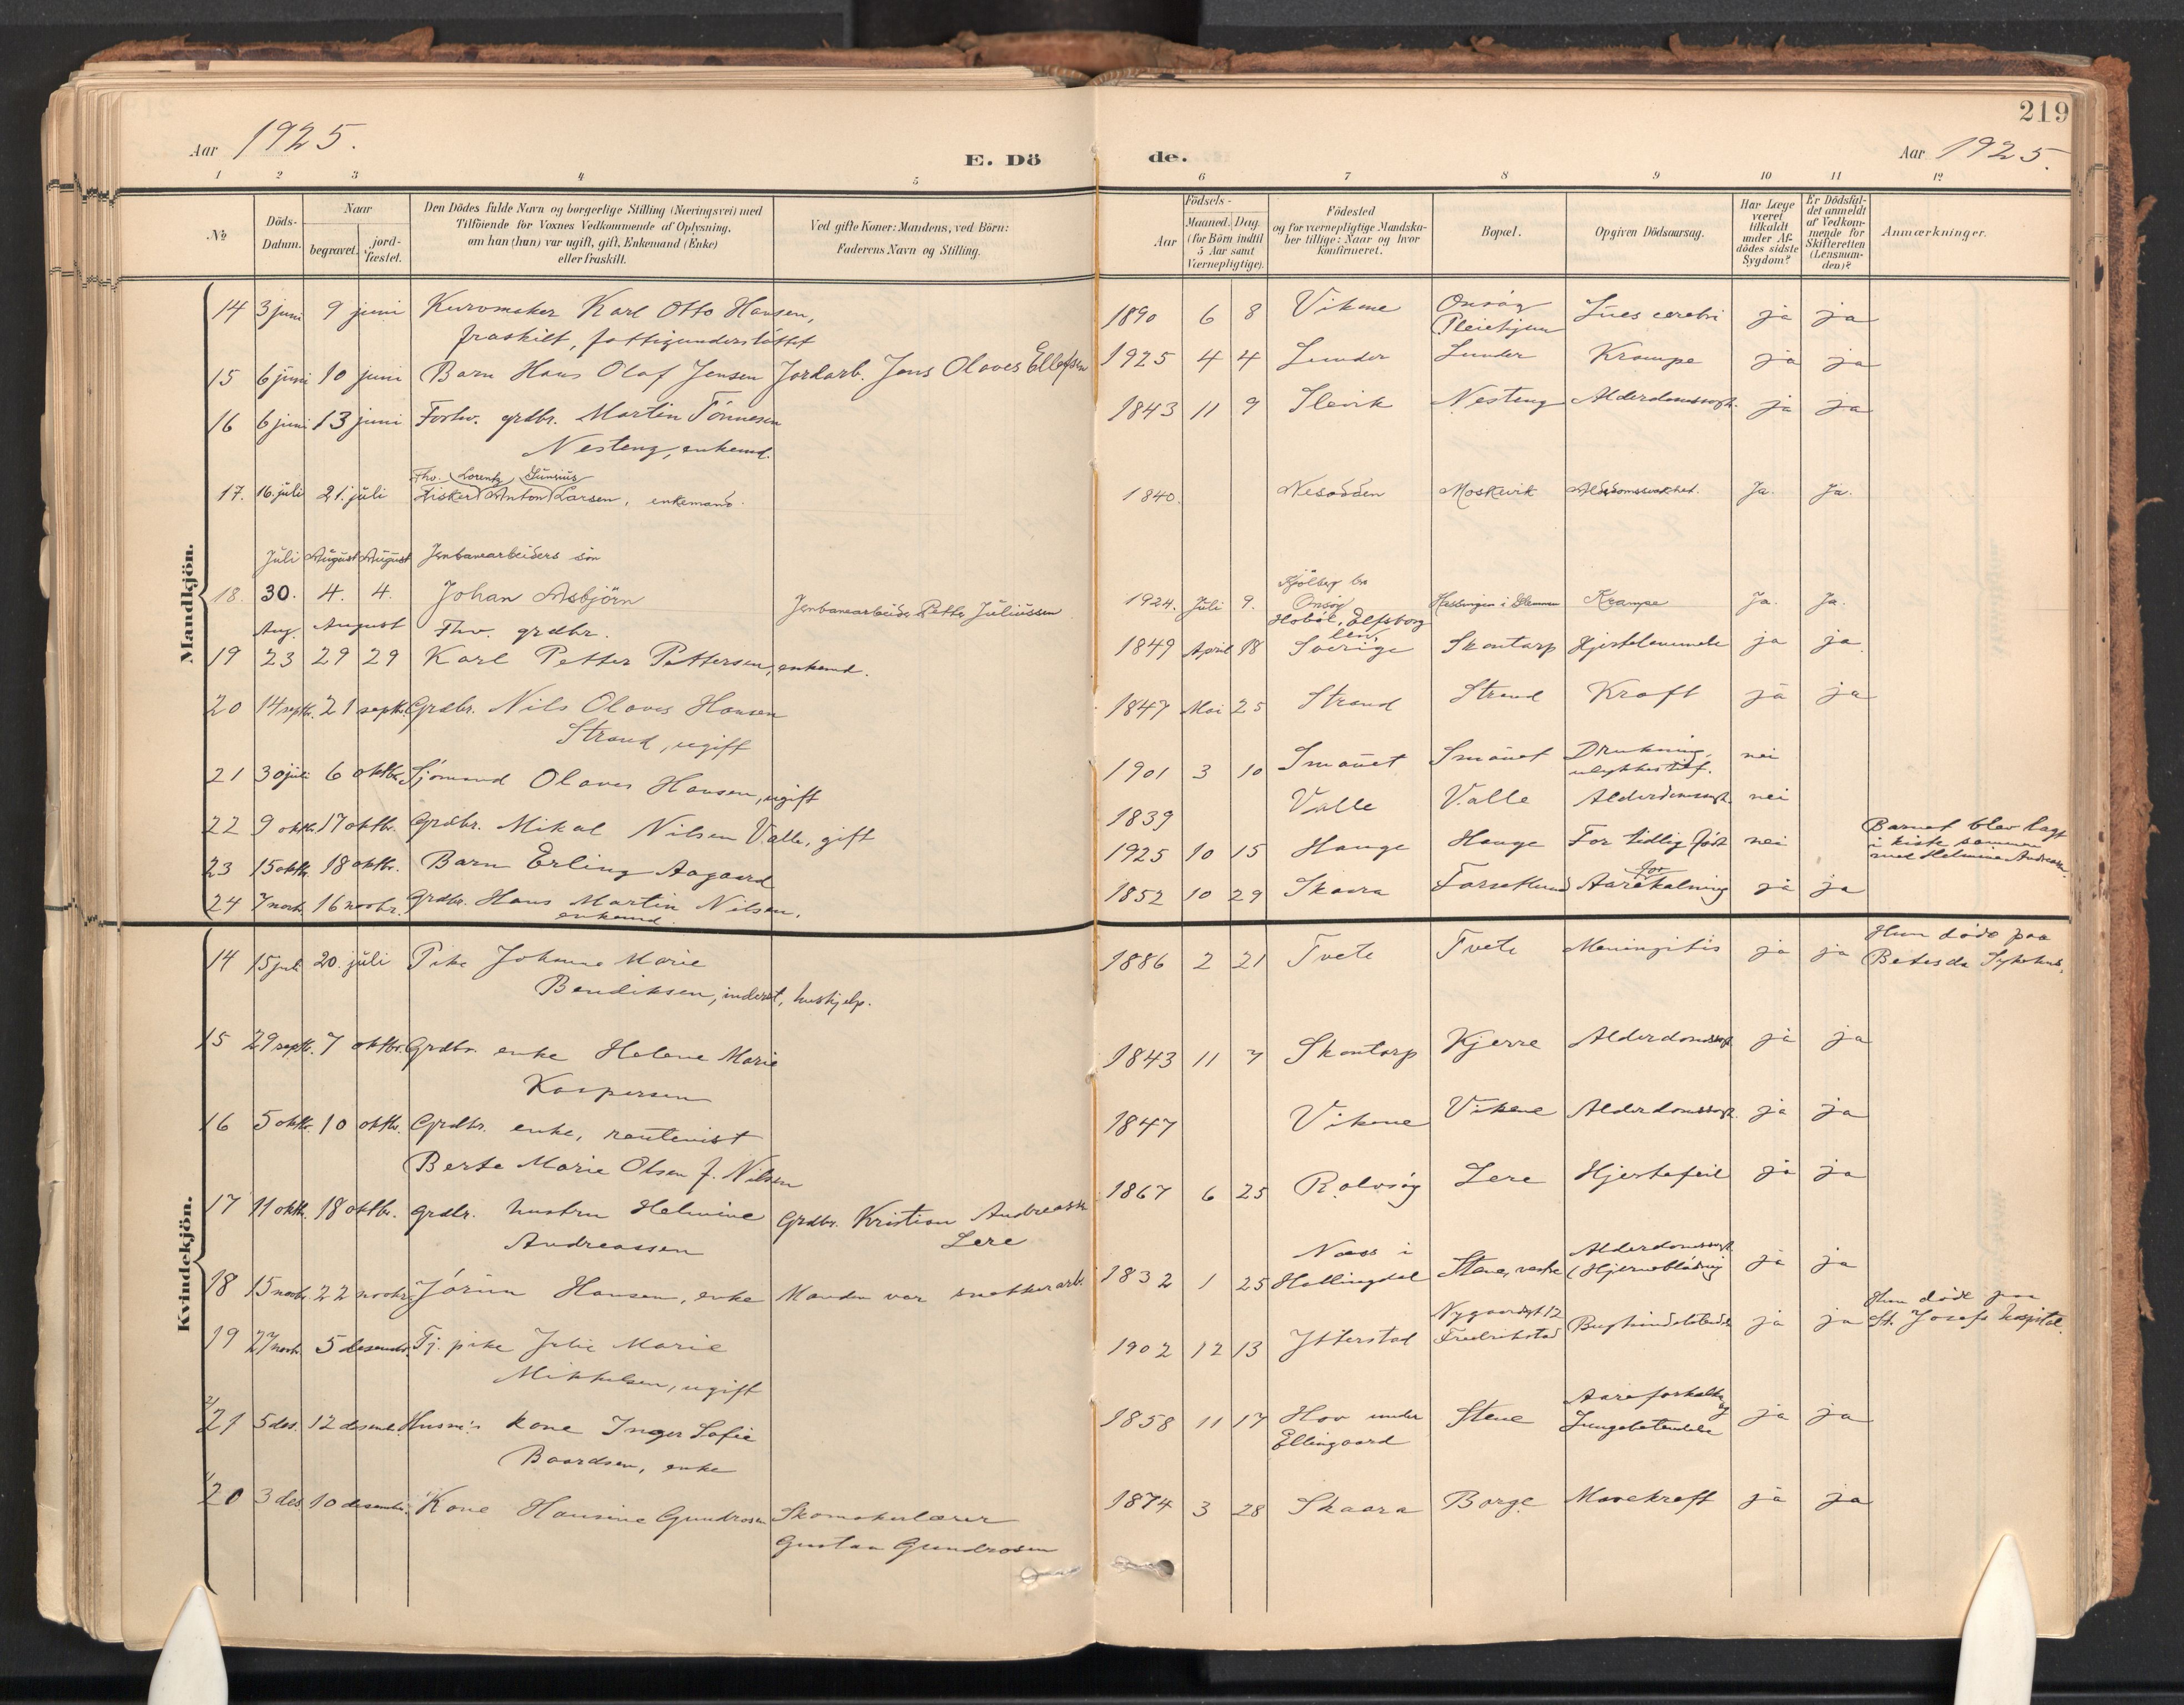 219
Aar 1925.
E. Dö
de.
Aar 1925.
1 2 3 4 5
6 7 8 9 10 11 12
No
Döds-Datum.
Naar
begravet.
jord-fæstet.
Den Dödes fulde Navn og borgerlige Stilling (Næringsvei) med
Tilföiende for Voxnes Vedkommende af Oplysning,
om han (hun) var ugift, gift, Enkemand (Enke)
eller fraskilt.
Ved gifte Koner: Mandens, ved Börn:
Faderens Navn og Stilling.
Födsels-
Aar
Maaned. Dag.
(for Börn indtil
5 Aar samt
Værnepligtige).
Födested
og for værnepligtige Mandska-
ber tillige: Naar og hvor
konfirmeret.
Bopæl.
Opgiven Dödsaarsag.
Har Læge
været
tilkaldt
under Af-
dödes sidste
Sygdom?
Er Dödsfal-
det anmeldt
af Vedkom-
mende for
Skifteretten
(Lensman-
den)?
Anmærkninger.
Mandkjön.
14 3 juni 9 juni Kurvmaker Karl Otto Hansen, 1890 6 8 Vikene Onsöy Lues cerebri ja ja
fraskilt, fattigunderstöttet Pleiehjem
15 6 juni 10 juni Barn Hans Olaf Jensen Jordarb. Jens Olaves Ellefsen 1925 4 4 Lunder Lunder Krampe ja ja
16 6 juni 13 juni Forhv. grdbr. Martin Tönnesen 1843 11 9 Slevik Nesteng ja ja
Nesteng, enkemd.
Fhv. Lorentz Gunerius
17. 16. juli 21. juli Fisker Anton Larsen, enkemand. 1840. Nesodden Moskevik Ja. Ja.
Juli August August Jernbanearbeiders sön
18. 30. 4. 4. Johan Asbjörn Jernbanearbeider Petter Juliussen 1924. Juli 9. Kjölberg bro Onsöy Hassingen i Glemmen Krampe Ja. Ja.
Aug. August Fhv. grdbr. Elfsborg len,
19 23 29 29 Karl Petter Pettersen, enkemd. 1849 April 18 Sverige Skontorp Hjertelammelse ja ja
20 14 septbr. 21 septbr. Grdbr. Nils Olaves Hansen 1847 Mai 25 Strand Strand Kræft ja ja
Strand, ugift
21 30 juli 6 oktbr. Sjömand Olaves Hansen, ugift 1901 3 10 Smauet Smauet Drukning, nei
ulykkestilf.
22 9 oktbr. 17 oktbr. Grdbr. Mikal Nilsen Valle, gift 1839 Valle Valle nei
23 15 oktbr. 18 oktbr. Barn Erling Aagaard 1925 10 15 Hauge Hauge For tidlig föst nei Barnet blev lagt
i kiste sammen
med Helmine Andreassen.
24 7 novbr. 16 novbr. Grdbr. Hans Martin Nilsen, 1852 10 29 Skaara Aareforkalning ja ja
enkemd.
Kvindekjön.
14 15 juli 20. juli Pike Johanne Marie 1886 2 21 Tvete Tvete Meningitis ja ja Hun döde paa
Bendiksen, inderst, hushjelp. Betesda Sykehus.
15 29 septbr. 7 oktbr. Grdbr. enke Helene Marie 1843 11 7 Skontorp Kjerre ja ja
Kaspersen
16 5 oktbr. 10 oktbr. Grdbr. enke, rentenist 1847 Vikene Vikene ja ja
Berte Marie Olsen f. Nilsen
17 11 oktbr. 18 oktbr. grdbr. hustru Helmine Grdbr. Kristian Andreassen 1867 6 25 Rolvsöy Lere Hjertefeil ja ja
Andreassen Lere
18 15 novbr. 22 novbr. Jörun Hansen, enke Manden var snekkerarb. 1832 1 25 Næss i Hallingdal Stene, vestre (Hjerneblödning ja ja
19 27 novbr. 5 desembr. Tj. pike Julie Marie 1902 12 13 Ytterstad Nygaardsgt 12 Fredrikstad ja ja Hun döde paa
Mikkelsen, ugift St. Josefs hospital.
21 5 des. 12 desemb. Husm.s kone Inger Sofie 1858 11 17 Hov under Stene Aareforkalkn. og ja ja
Baardsen, enke Ellingaard Lungebetændelse
20 3 des. 10 desembr. Kone Hansine Gundrosen Skomakerlærer 1874 3 28 Skaara Borge Mavekræft ja ja
Gustav Gundrosen